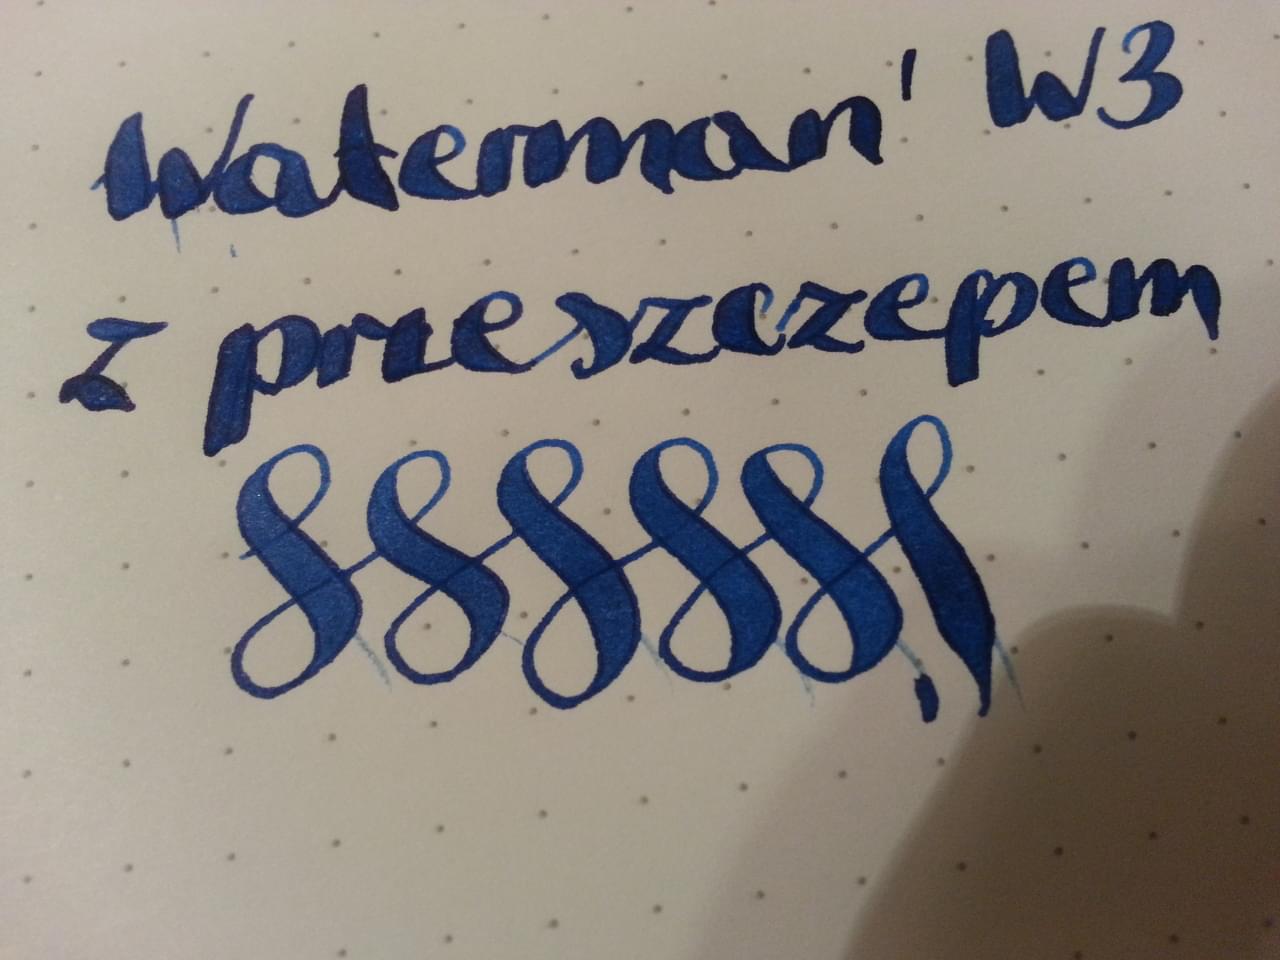 Waterman' W3
z przeszczepem